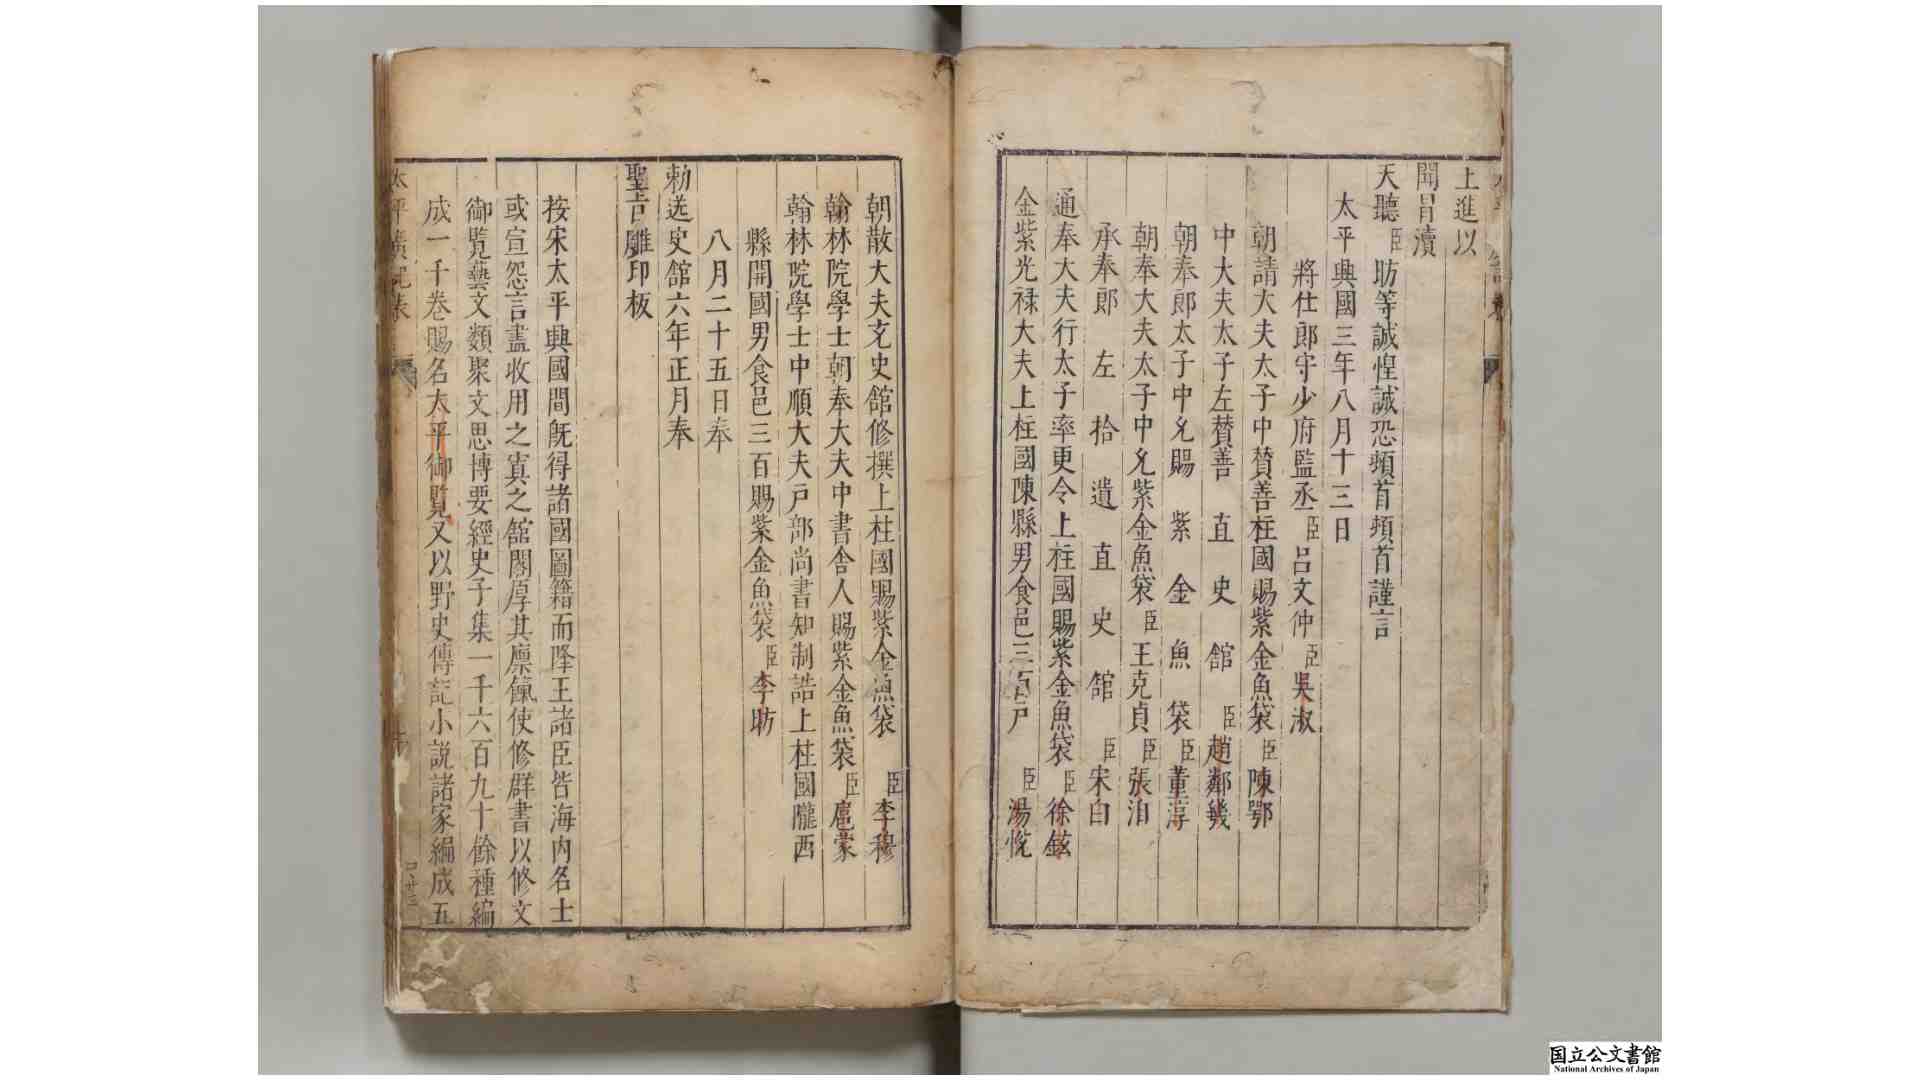 上進以
聞冒瀆
天聽臣昉等誠惶誠恐頓首頓首謹言
太平興國三年八月十三日
將仕郎守少府監丞臣呂文仲臣吳淑
朝請大夫太子中贊善柱國賜紫金魚袋臣陳鄂
中大夫太子左贊善直史館臣趙鄰幾
朝奉郎太子中允賜紫金魚袋臣董淳
朝奉大夫太子中允紫金魚袋臣王克貞臣張洎
承奉郎左拾遺直史館臣宋白
通奉大夫行太子率更令上柱國賜紫金魚袋臣徐鉉
金紫光祿大夫上柱國陳縣男食邑三百戶臣湯悅
朝散大夫充史館修撰上柱國賜紫金魚袋臣李穆
翰林院學士朝奉大夫中書舍人賜紫金魚袋臣扈蒙
翰林院學士中順大夫戶部尚書知制誥上柱國隴西
縣開國男食邑三百賜紫金魚袋臣李昉
八月二十五日奉
勅送史館六年正月奉
聖旨雕印板
按宋太平興國間既得諸國圖籍而降王諸臣皆海內名士
或宣怨言盡收用之寘之館閣厚其廩餼使修群書以修文
御覽藝文類聚文思博要經史子集一千六百九十餘種編
成一千卷賜名太平御覽又以野史傳記小說諸家編成五
太平廣記表
国立公文書館
National Archives of Japan